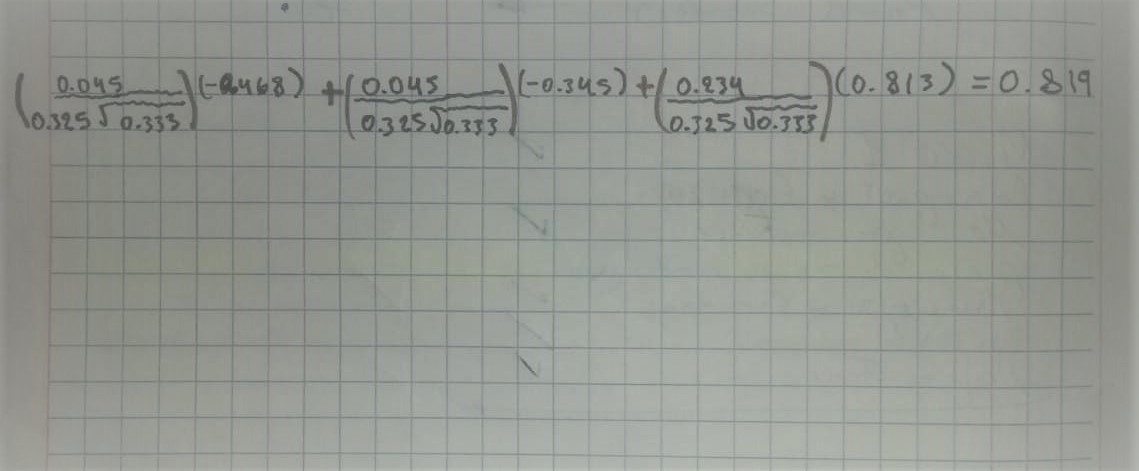 (0.045 / 0.325√0.333)(-0.468) + (0.045 / 0.325√0.333)(-0.345) + (0.234 / 0.325√0.333)(0.813) = 0.819